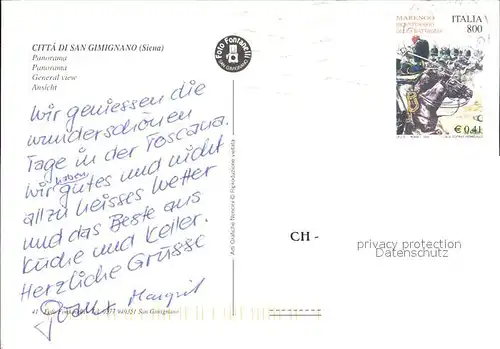 CITTÀ DI SAN GIMIGNANO (Siena)
Panorama
Panorama
General view
Ansicht
Wir geniessen die
wunderschönen
Tage in der Toscana.
Wir haben gutes und nicht
allzu heisses Wetter
und das Beste aus
Küche und Keller.
Herzliche Grüsse
Margrit
41 - Foto Fontanelli - Tel. 0577 949351 San Gimignano
Foto Fontanelli
SAN GIMIGNANO
Ars Grafiche Nencini © Riproduzione vietata
MARENGO
BICENTENARIO
DELLA BATTAGLIA
ITALIA
800
€ 0,41
CH -
privacy protection
Datenschutz